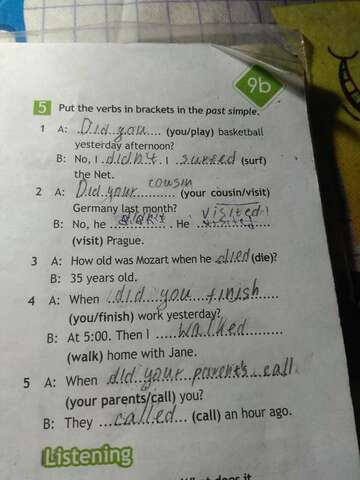 9b
5 Put the verbs in brackets in the past simple.
1 A: Did you (you/play) basketball
yesterday afternoon?
B: No, I didn't. I surfed (surf)
the Net.
cousin
2 A: Did your (your cousin/visit)
Germany last month?
B: No, he didn't. He visited
(visit) Prague.
3 A: How old was Mozart when he died (die)?
B: 35 years old.
4 A: When did you finish
(you/finish) work yesterday?
B: At 5:00. Then I walked
(walk) home with Jane.
5 A: When did your parents call
(your parents/call) you?
B: They called (call) an hour ago.
Listening